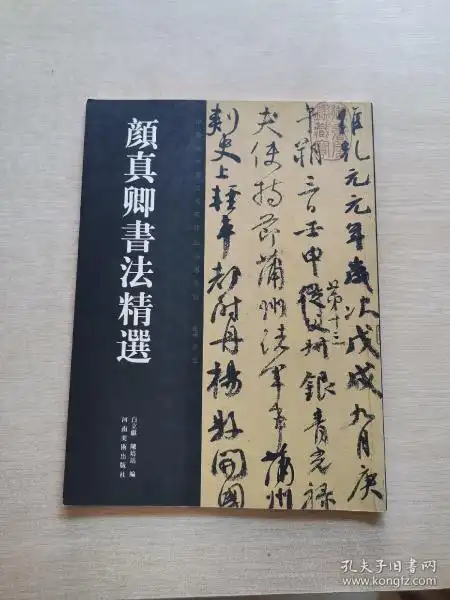 顔真卿書法精選
白立獻 陳培站 編
河南美術出版社
維乾元元年歲次戊戌九月庚
午朔三日壬申從父
第十三
叔銀青光祿
夫使持節蒲州諸軍事蒲州
刺史上輕車都尉丹楊縣開國
孔夫子旧书网
www.kongfz.com